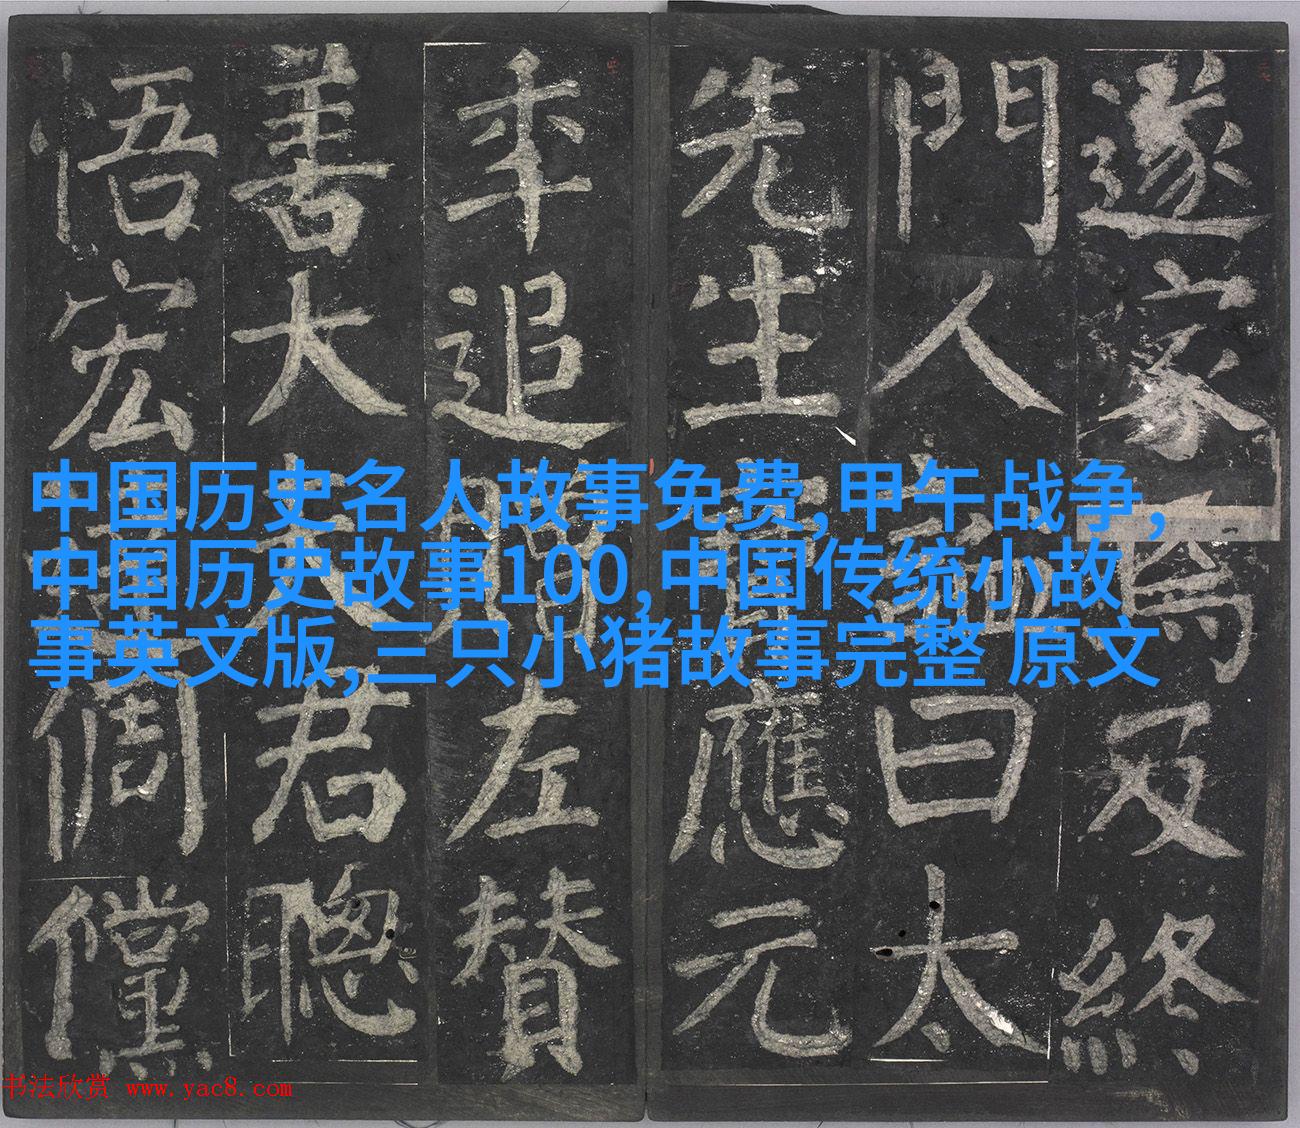 遂家焉及終
門人謚曰太
先生寶應元
年追贈左贊
善大夫君聰
悟宏達倜儻
中国历史名人故事免费,甲午战争,
中国历史故事100,中国传统小故
事英文版,三只小猪故事完整 原文
书法欣赏 www.yac8.com